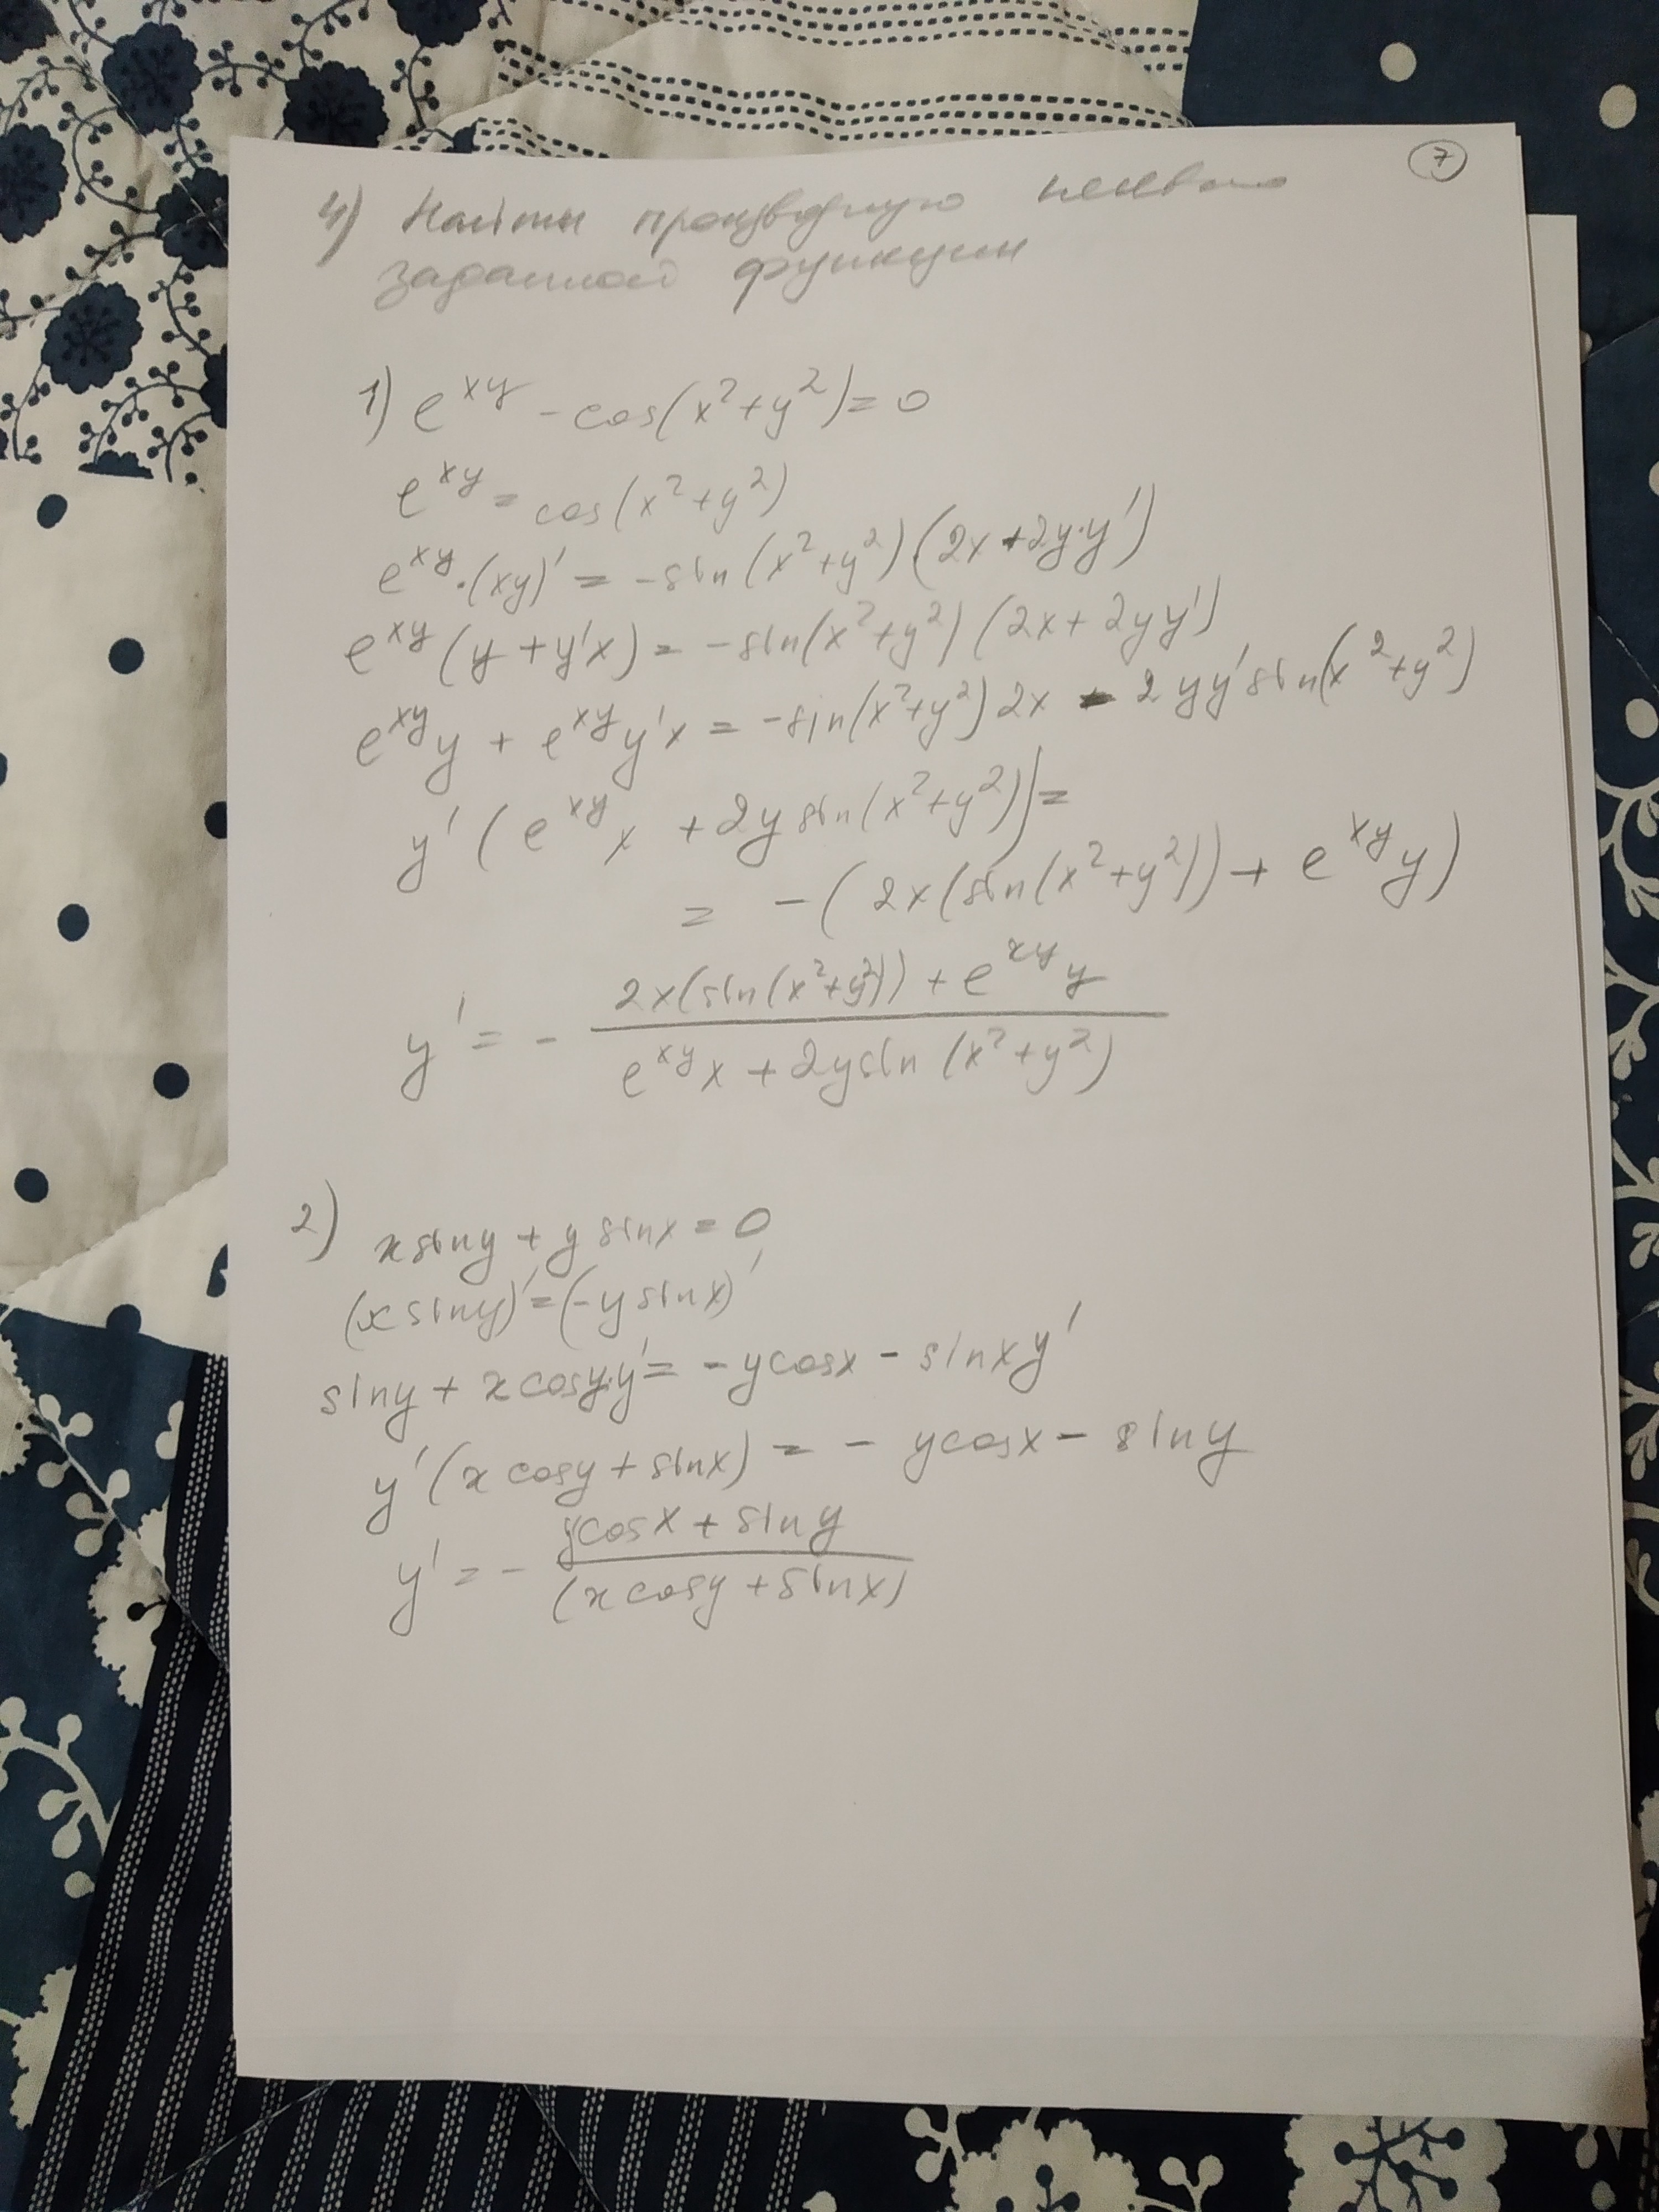 7
4) Найти производную неявно
заданной функции
1) e^xy - cos(x²+y²)=0
e^xy = cos(x²+y²)
e^xy·(xy)' = -sin(x²+y²)·(2x+2y·y')
e^xy(y+y'x) = -sin(x²+y²)(2x+2yy')
e^xy y + e^xy y'x = -sin(x²+y²)2x - 2yy'sin(x²+y²)
y'(e^xy x + 2y sin(x²+y²))=
= -(2x(sin(x²+y²)) + e^xy y)
y' = - (2x(sin(x²+y²)) + e^xy y) / (e^xy x + 2y sin(x²+y²))
2) x siny + y sinx = 0
(x siny)' = (-y sinx)'
siny + x cosy·y' = -ycosx - sinxy'
y'(x cosy + sinx) = - ycosx - siny
y' = - ycosx + siny / (x cosy + sinx)